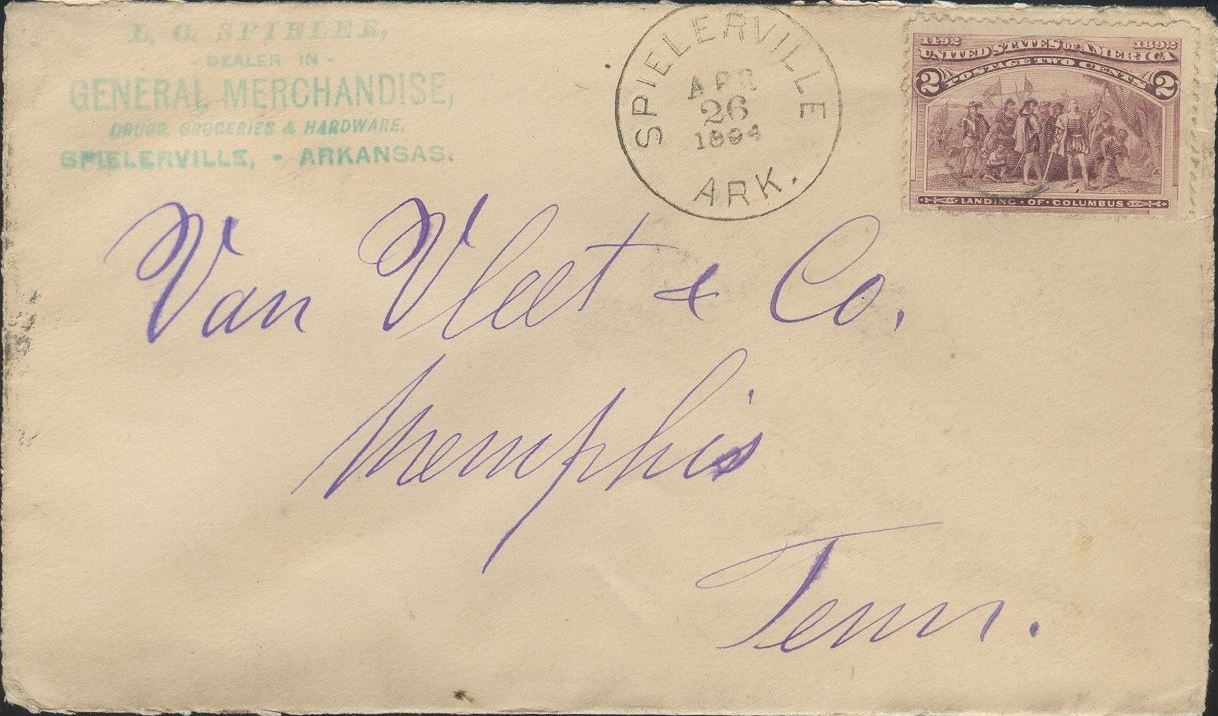 L. C. SPIELER,
- DEALER IN -
GENERAL MERCHANDISE,
DRUGS, GROCERIES & HARDWARE,
SPIELERVILLE, - ARKANSAS.
SPIELERVILLE
APR
26
1894
ARK.
1492 1892
UNITED STATES OF AMERICA
2 POSTAGE TWO CENTS 2
LANDING · OF · COLUMBUS
Van Vleet & Co.
Memphis
Tenn.